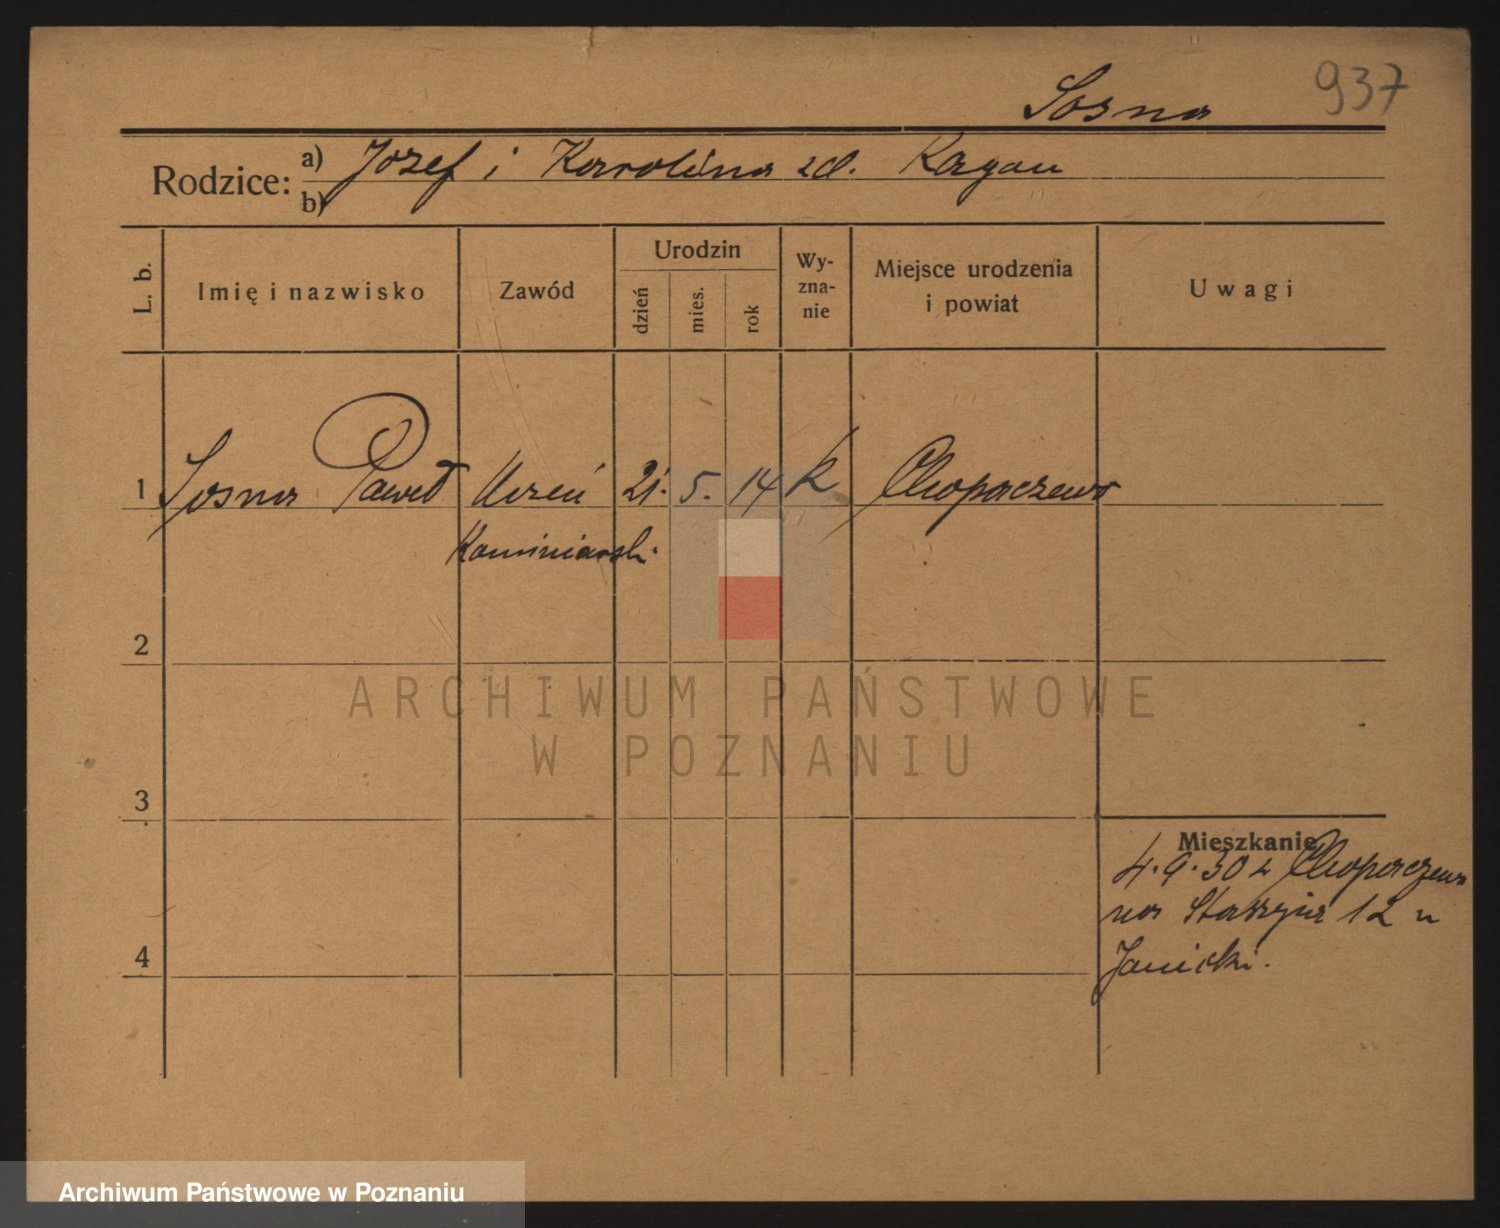 937
Sosna
Rodzice: a) Józef i Karolina zd. Kagan
b)
L. b.
Imię i nazwisko
Zawód
Urodzin
dzień
mies.
rok
Wy-
zna-
nie
Miejsce urodzenia
i powiat
Uwagi
1 Sosna Paweł Uczeń 21. 5. 14 k
Kominiarski
2
ARCHIWUM PAŃSTWOWE
W POZNANIU
3
Mieszkanie
4.9.30 z
na Staszyca 12 u
4
Janicki.
Archiwum Państwowe w Poznaniu